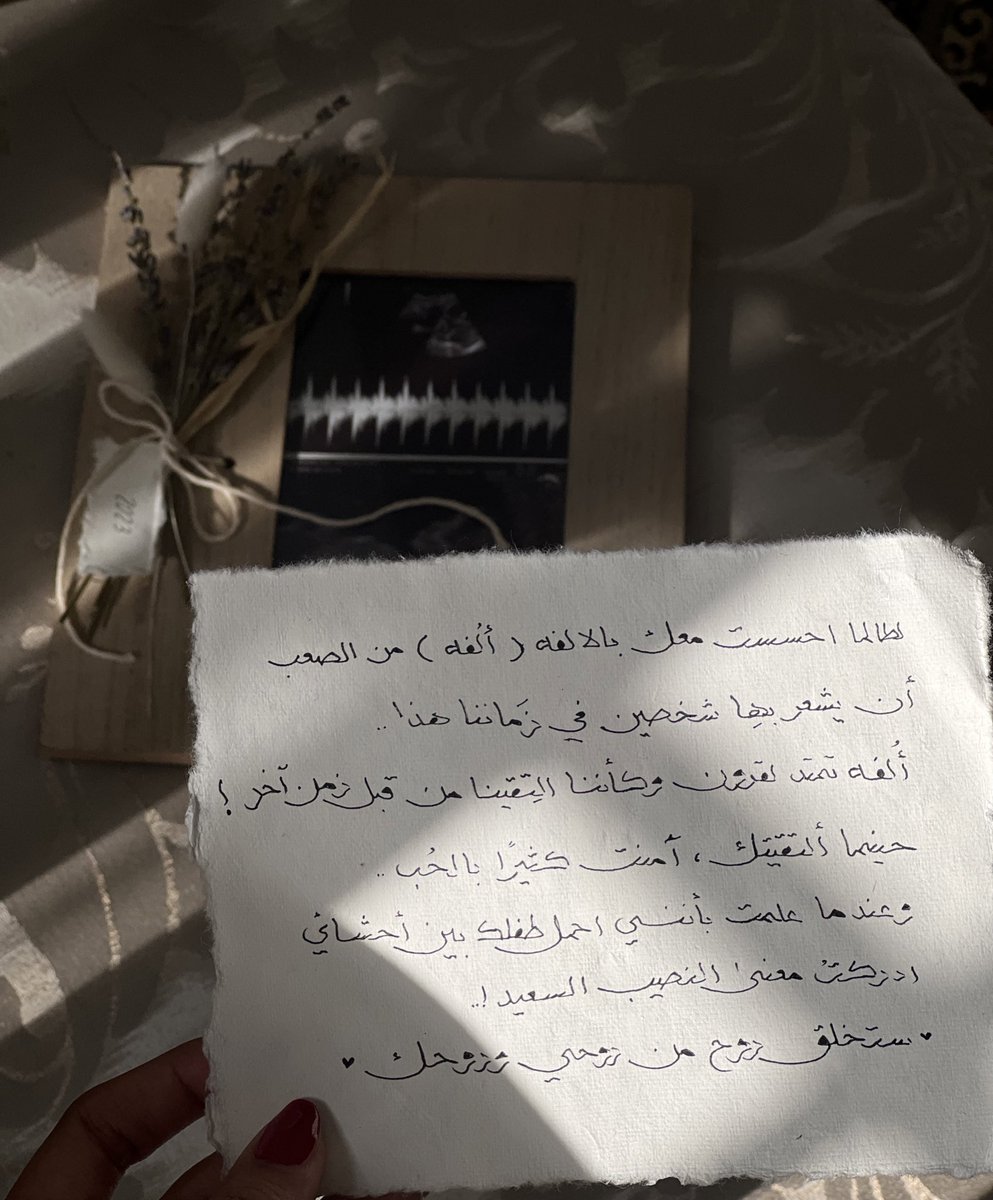 2023
لطالما احسست معك بالالفه ( ألفه ) من الصعب
أن يشعر بهِا شخصين في زَماننا هذا ..
أُلفه تمتد لقرون وكأننا التِقينا من قبل زمن آخر !
حينما ألتقيتك ، آمنت كثيرًا بالحُب ..
وعندما علمت بأنني احمل طفلك بين أحشائي
ادركتُ معنىٰ النصيب السعيد !..
♥ ستخلق روح من روحي وروحك ♥